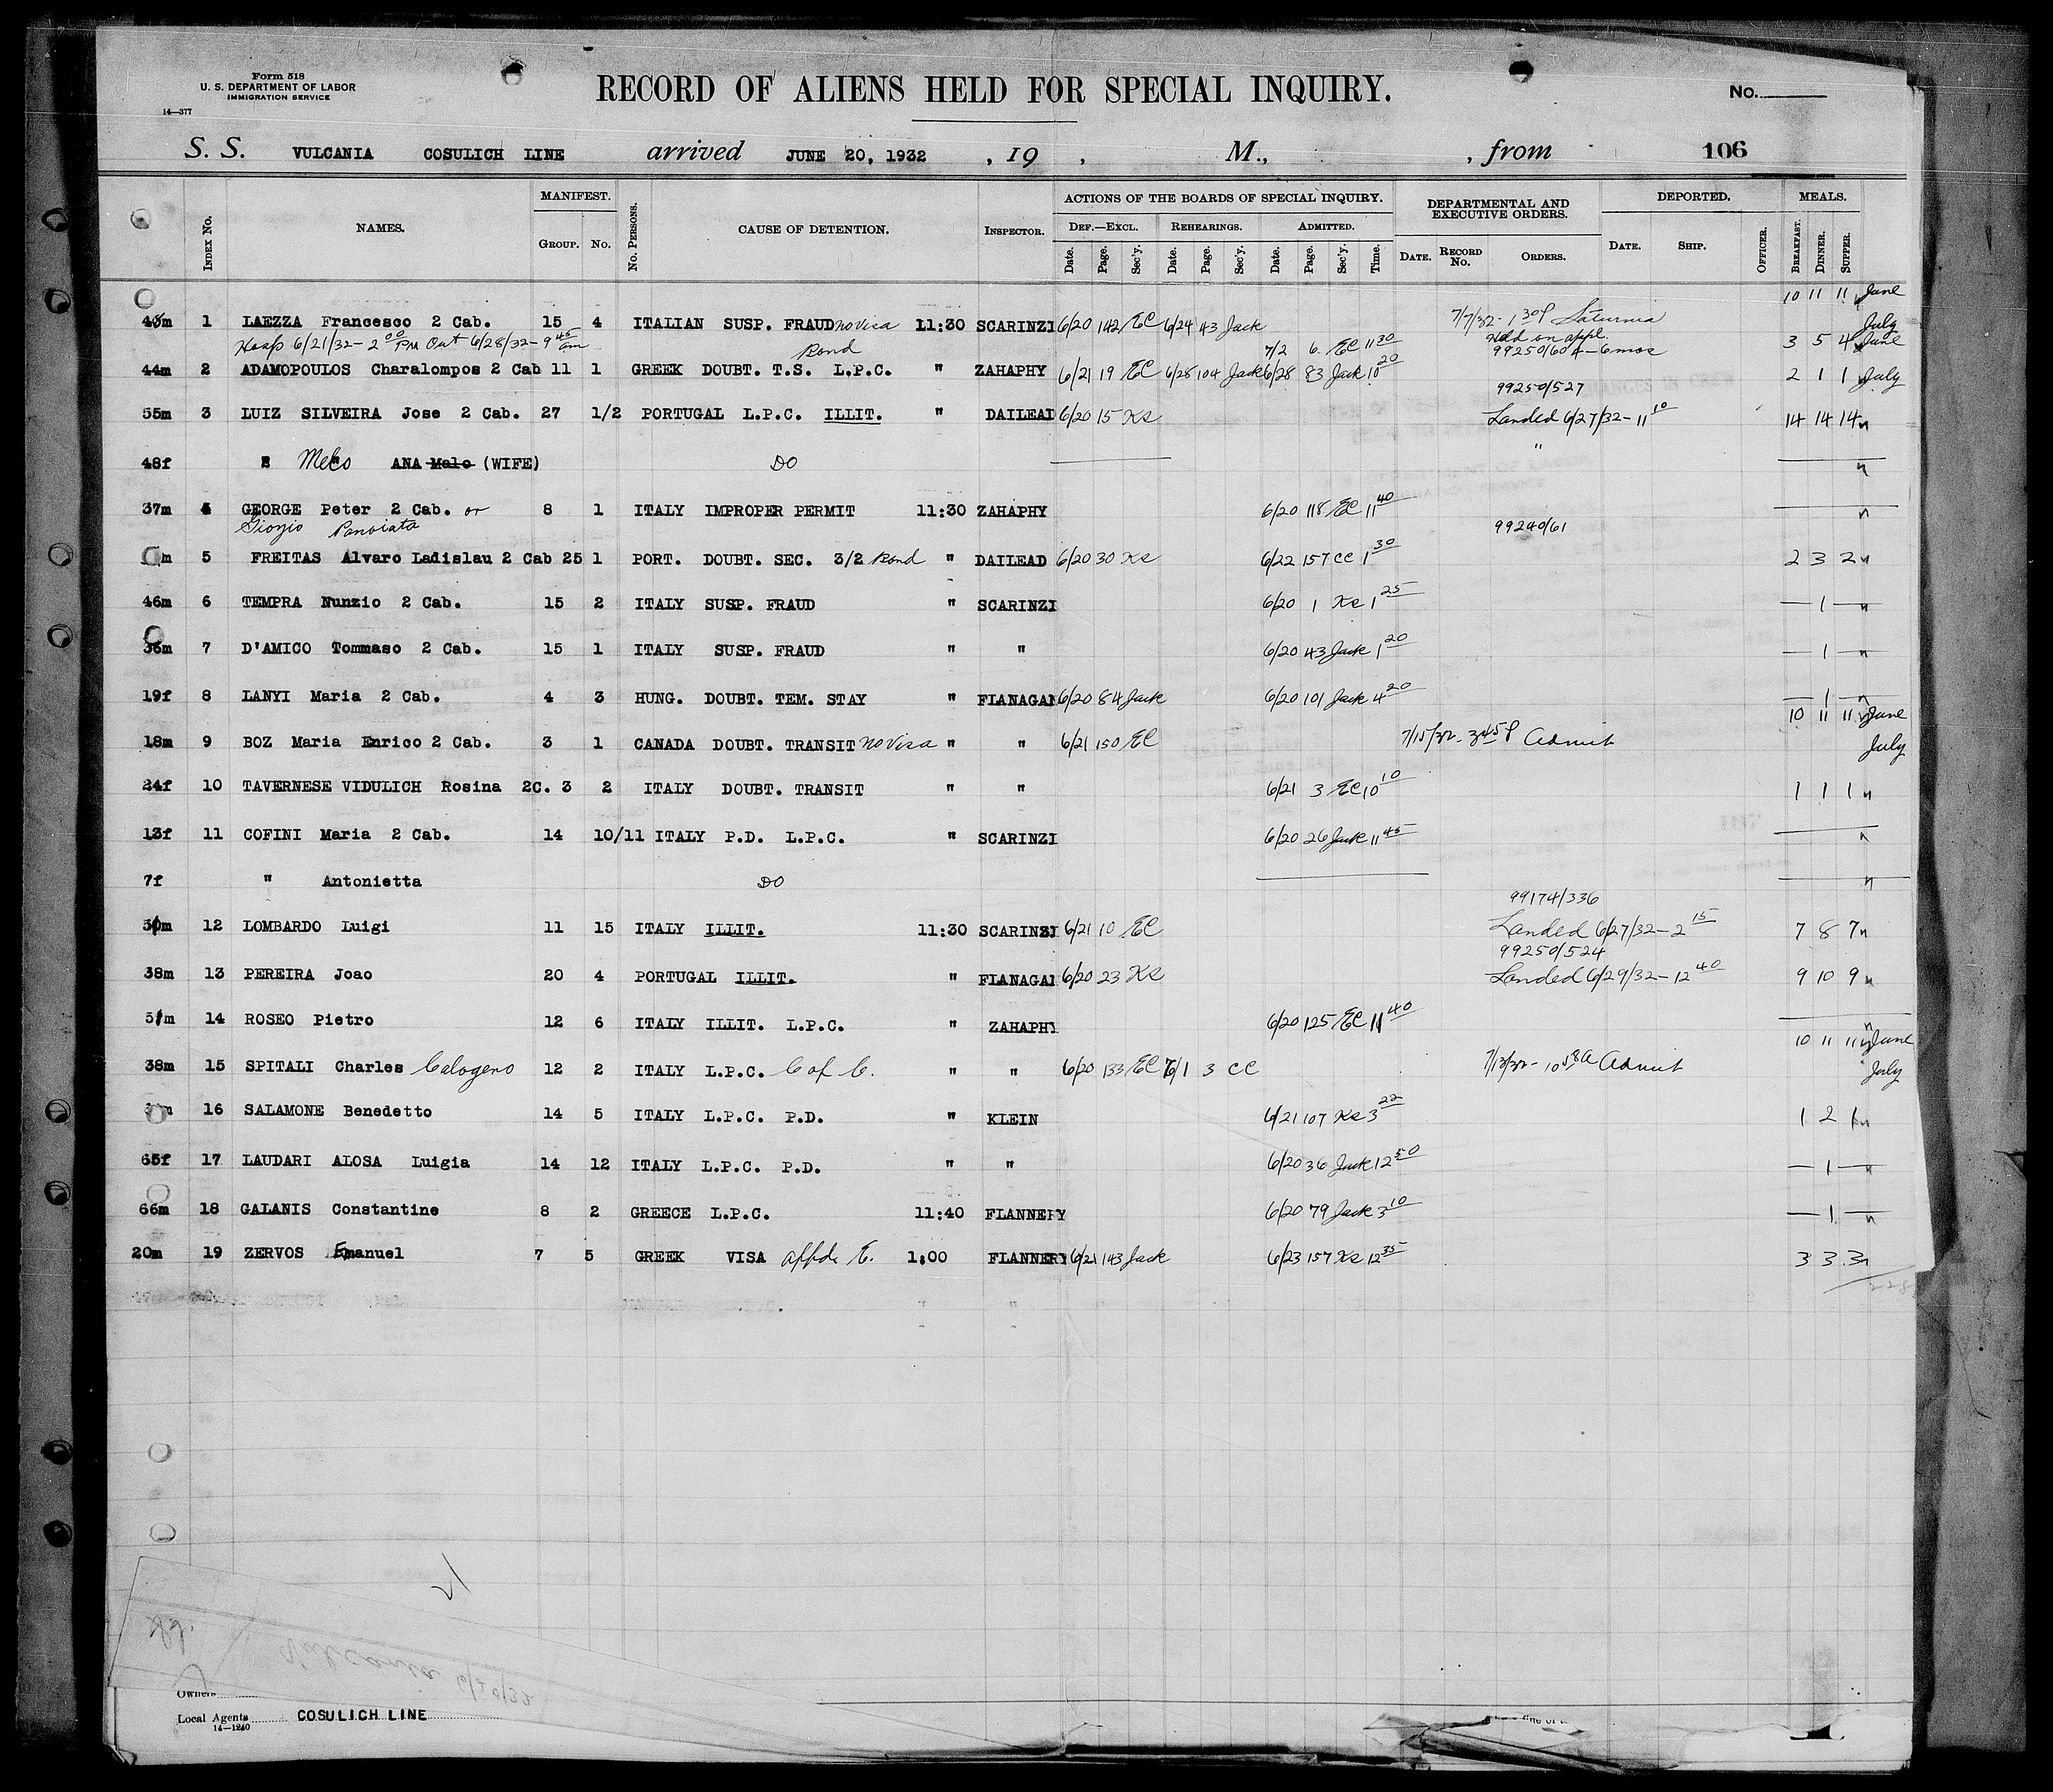 Form 518
U. S. DEPARTMENT OF LABOR
IMMIGRATION SERVICE
14—377
RECORD OF ALIENS HELD FOR SPECIAL INQUIRY.
No.
S. S. VULCANIA COSULICH LINE arrived JUNE 20, 1932 , 19 , M., , from 106
Index No. NAMES. MANIFEST. Group. No. No. Persons. CAUSE OF DETENTION. Inspector. ACTIONS OF THE BOARDS OF SPECIAL INQUIRY. DEPARTMENTAL AND EXECUTIVE ORDERS. DEPORTED. MEALS.
Def.—Excl. Rehearings. Admitted.
Date. Page. Sec'y. Date. Page. Sec'y. Date. Page. Sec'y. Time. Date. Record No. Orders. Date. Ship. Officer. Breakfast. Dinner. Supper.
10 11 11 June
1 LAEZZA Francesco 2 Cab. 15 4 ITALIAN SUSP. FRAUD no visa 11:30 SCARINZI 6/20 142 EC 6/24 43 Jack 7/7/32- 1 30P Saturnia July
Hosp 6/21/32- 2 00 PM Out 6/28/32- 9 45 am
Bond 7/2 6 EC 11 30 Held on appl. 99250/604-6mos 3 5 4 June
44m 2 ADAMOPOULOS Charalompos 2 Cab 11 1 GREEK DOUBT. T.S. L.P.C. " ZAHAPHY 6/21 19 EC 6/28 104 Jack 6/28 83 Jack 10 20 2 1 1 July
99250/527
55m 3 LUIZ SILVEIRA Jose 2 Cab. 27 1/2 PORTUGAL L.P.C. ILLIT. " DAILEAD 6/20 15 Ks Landed 6/27/32- 11 10 14 14 14 "
48f " ANA Melo (WIFE) DO " "
37m 4 GEORGE Peter 2 Cab. or 8 1 ITALY IMPROPER PERMIT 11:30 ZAHAPHY 6/20 118 EC 11 40 "
Giorgio
99240/61
m 5 FREITAS Alvaro Ladislau 2 Cab 25 1 PORT. DOUBT. SEC. 3/2 Bond " DAILEAD 6/20 30 Ks 6/22 157 CC 1 30 2 3 2 "
46m 6 TEMPRA Nunzio 2 Cab. 15 2 ITALY SUSP. FRAUD " SCARINZI 6/20 1 Ks 1 25 — 1 — "
36m 7 D'AMICO Tommaso 2 Cab. 15 1 ITALY SUSP. FRAUD " " 6/20 43 Jack 1 20 — 1 — "
19f 8 LANYI Maria 2 Cab. 4 3 HUNG. DOUBT. TEM. STAY " FLANAGAN 6/20 84 Jack 6/20 101 Jack 4 20 — 1 — "
10 11 11 June
18m 9 BOZ Maria Enrico 2 Cab. 3 1 CANADA DOUBT. TRANSIT no visa " " 6/21 150 EC 7/15/32- 3 45 P Admit July
24f 10 TAVERNESE VIDULICH Rosina 2C. 3 2 ITALY DOUBT. TRANSIT " " 6/21 3 EC 10 10 1 1 1 "
13f 11 COFINI Maria 2 Cab. 14 10/11 ITALY P.D. L.P.C. " SCARINZI 6/20 26 Jack 11 45 "
7f " Antonietta DO "
99174/336
12 LOMBARDO Luigi 11 15 ITALY ILLIT. 11:30 SCARINZI 6/21 10 EC Landed 6/27/32- 2 15 7 8 7 "
99250/524
38m 13 PEREIRA Joao 20 4 PORTUGAL ILLIT. " FLANAGAN 6/20 23 Ks Landed 6/29/32- 12 40 9 10 9 "
14 ROSEO Pietro 12 6 ITALY ILLIT. L.P.C. " ZAHAPHY 6/20 125 EC 11 40 "
10 11 11 June
38m 15 SPITALI Charles Calogero 12 2 ITALY L.P.C. C of C. " " 6/20 133 EC 7/1 3 CC 7/13/32- 10 58 a Admit July
16 SALAMONE Benedetto 14 5 ITALY L.P.C. P.D. " KLEIN 6/21 107 Ks 3 22 1 2 1 "
65f 17 LAUDARI ALOSA Luigia 14 12 ITALY L.P.C. P.D. " " 6/20 36 Jack 12 50 — 1 — "
66m 18 GALANIS Constantine 8 2 GREECE L.P.C. 11:40 FLANNERY 6/20 79 Jack 3 10 — 1 — "
20m 19 ZERVOS Emanuel 7 5 GREEK VISA affd. E. 1:00 FLANNERY 6/21 143 Jack 6/23 157 Ks 12 35 3 3 3 "
21
Vulcania 6/20/32
Owners
Local Agents COSULICH LINE
14—1240